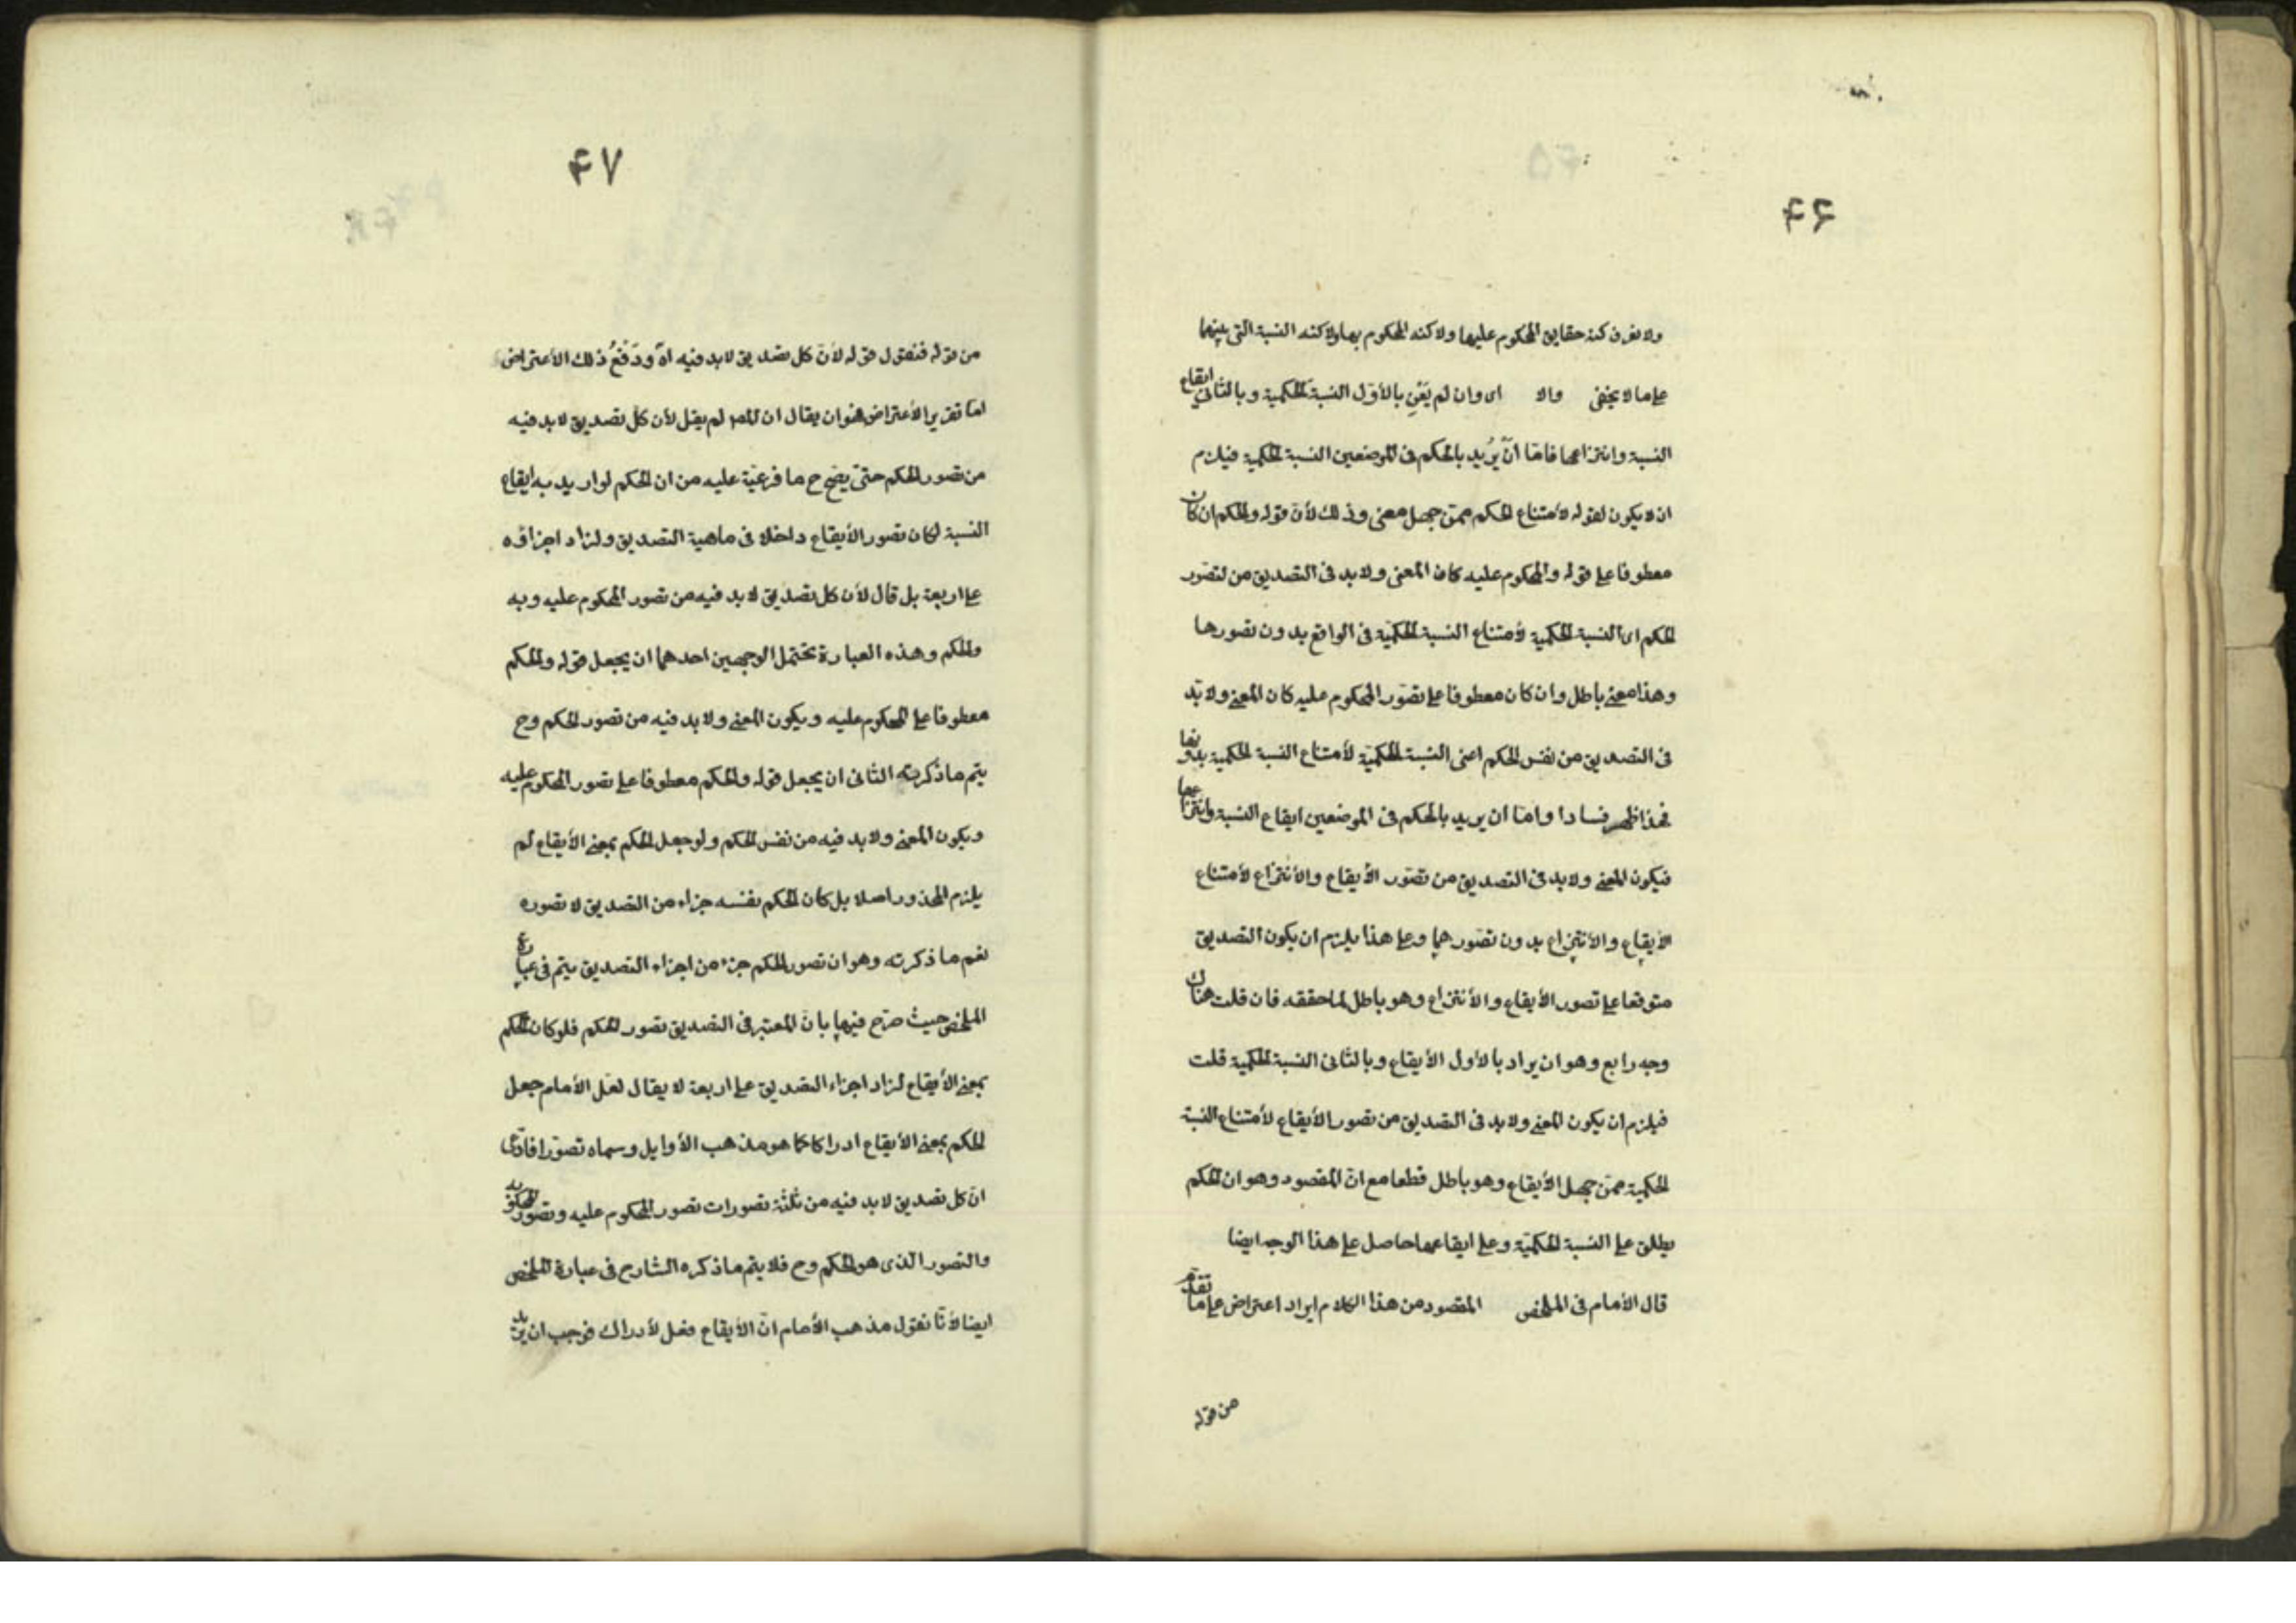 ۴۶
ولا نعرف كنه حقايق المحكوم عليها ولا كنه المحكوم بها ولا كنه النسبة التى بينهما
على ما لا يخفى والا اى وان لم يَعْنِ بالأوّل النسبة الحكمية وبالثانى ايقاع
النسبة وانتزاعها فامّا انْ يُريد بالحكم فى الموضعين النسبة الحكمية فيلزم
ان لا يكون لقوله لأمتناع الحكم ممّن جهل معنى وذلك لأنّ قوله والحكم ان كان
معطوفا على قوله والمحكوم عليه كان المعنى ولا بد فى التصديق من تصوّر
الحكم اى النسبة الحكمية لأمتناع النسبة الحكميّة فى الواقع بدون تصورها
وهذا معنى باطل وان كان معطوفا على تصوّر المحكوم عليه كان المعنى ولا بدّ
فى التصديق من نفس الحكم اعنى النسبة الحكميّة لأمتناع النسبة الحكمية بدونها
فهذا اظهر فسادا وامّا ان يريد بالحكم فى الموضعين ايقاع النسبة وانتزاعها
فيكون المعنى ولا بد فى التصديق من تصوّر الأيقاع والأنتزاع لأمتناع
الأيقاع والأنتزاع بدون تصوّرهما وعلى هذا يلزم ان يكون التصديق
متوقفا على تصور الأيقاع والأنتزاع وهو باطل لما حققه فان قلت هناك
وجه رابع وهو ان يراد بالأول الأيقاع وبالثانى النسبة الحكمية قلت
فيلزم ان يكون المعنى ولا بد فى التصديق من تصور الأيقاع لأمتناع النسبة
الحكمية ممّن جهل الأيقاع وهو باطل قطعا مع انّ المقصود وهو ان الحكم
يطلق على النسبة الحكميّة وعلى ايقاعها حاصل على هذا الوجه ايضا
قال الأمام فى الملخص المقصود من هذا الكلام ايراد اعتراض على ما تقدّم
من قوله
۴۷
من قوله فنقول قوله لأنّ كل تصديق لا بد فيه اه ودَفْعُ ذلك الأعتراض
امّا تقرير الأعتراض فهو ان يقال ان المص لم يقل لأن كلّ تصديق لا بد فيه
من تصور الحكم حتىّ يصّح ح ما فرعيّة عليه من ان الحكم لو اريد به ايقاع
النسبة لكان تصور الأيقاع داخلا فى ماهية التصديق ولزاد اجزاؤه
على اربعة بل قال لأن كل تصديق لا بد فيه من تصور المحكوم عليه وبه
والحكم وهذه العبارة تحتمل الوجهين احدهما ان يجعل قوله والحكم
معطوفا على المحكوم عليه ويكون المعنى ولا بد فيه من تصور الحكم وح
يتم ما ذكرته الثانى ان يجعل قوله والحكم معطوفا على تصور المحكوم عليه
ويكون المعنى ولا بد فيه من نفس الحكم ولو جعل الحكم بمعنى الأيقاع لم
يلزم المحذور اصلا بل كان الحكم نفسه جزاء من التصديق لا تصوره
نعم ما ذكرته وهو ان تصور الحكم جزء من اجزاء التصديق يتم فى عبارة
الملخص حيث صرّح فيها بانّ المعتبر فى التصديق تصور الحكم فلو كان الحكم
بمعنى الأيقاع لزاد اجزاء التصديق على اربعة لا يقال لعلّ الأمام جعل
الحكم بمعنى الأيقاع ادراكا كما هو مذهب الأوايل وسماه تصوّرا فادّى
انّ كل تصديق لا بد فيه من ثلثة تصورات تصور المحكوم عليه وتصور المحكوم به
والتصور الذى هو الحكم وح فلا يتم ما ذكره الشارح فى عبارة الملخص
ايضا لأنّا نقول مذهب الأمام انّ الأيقاع فعل لأدراك فوجب ان يريد